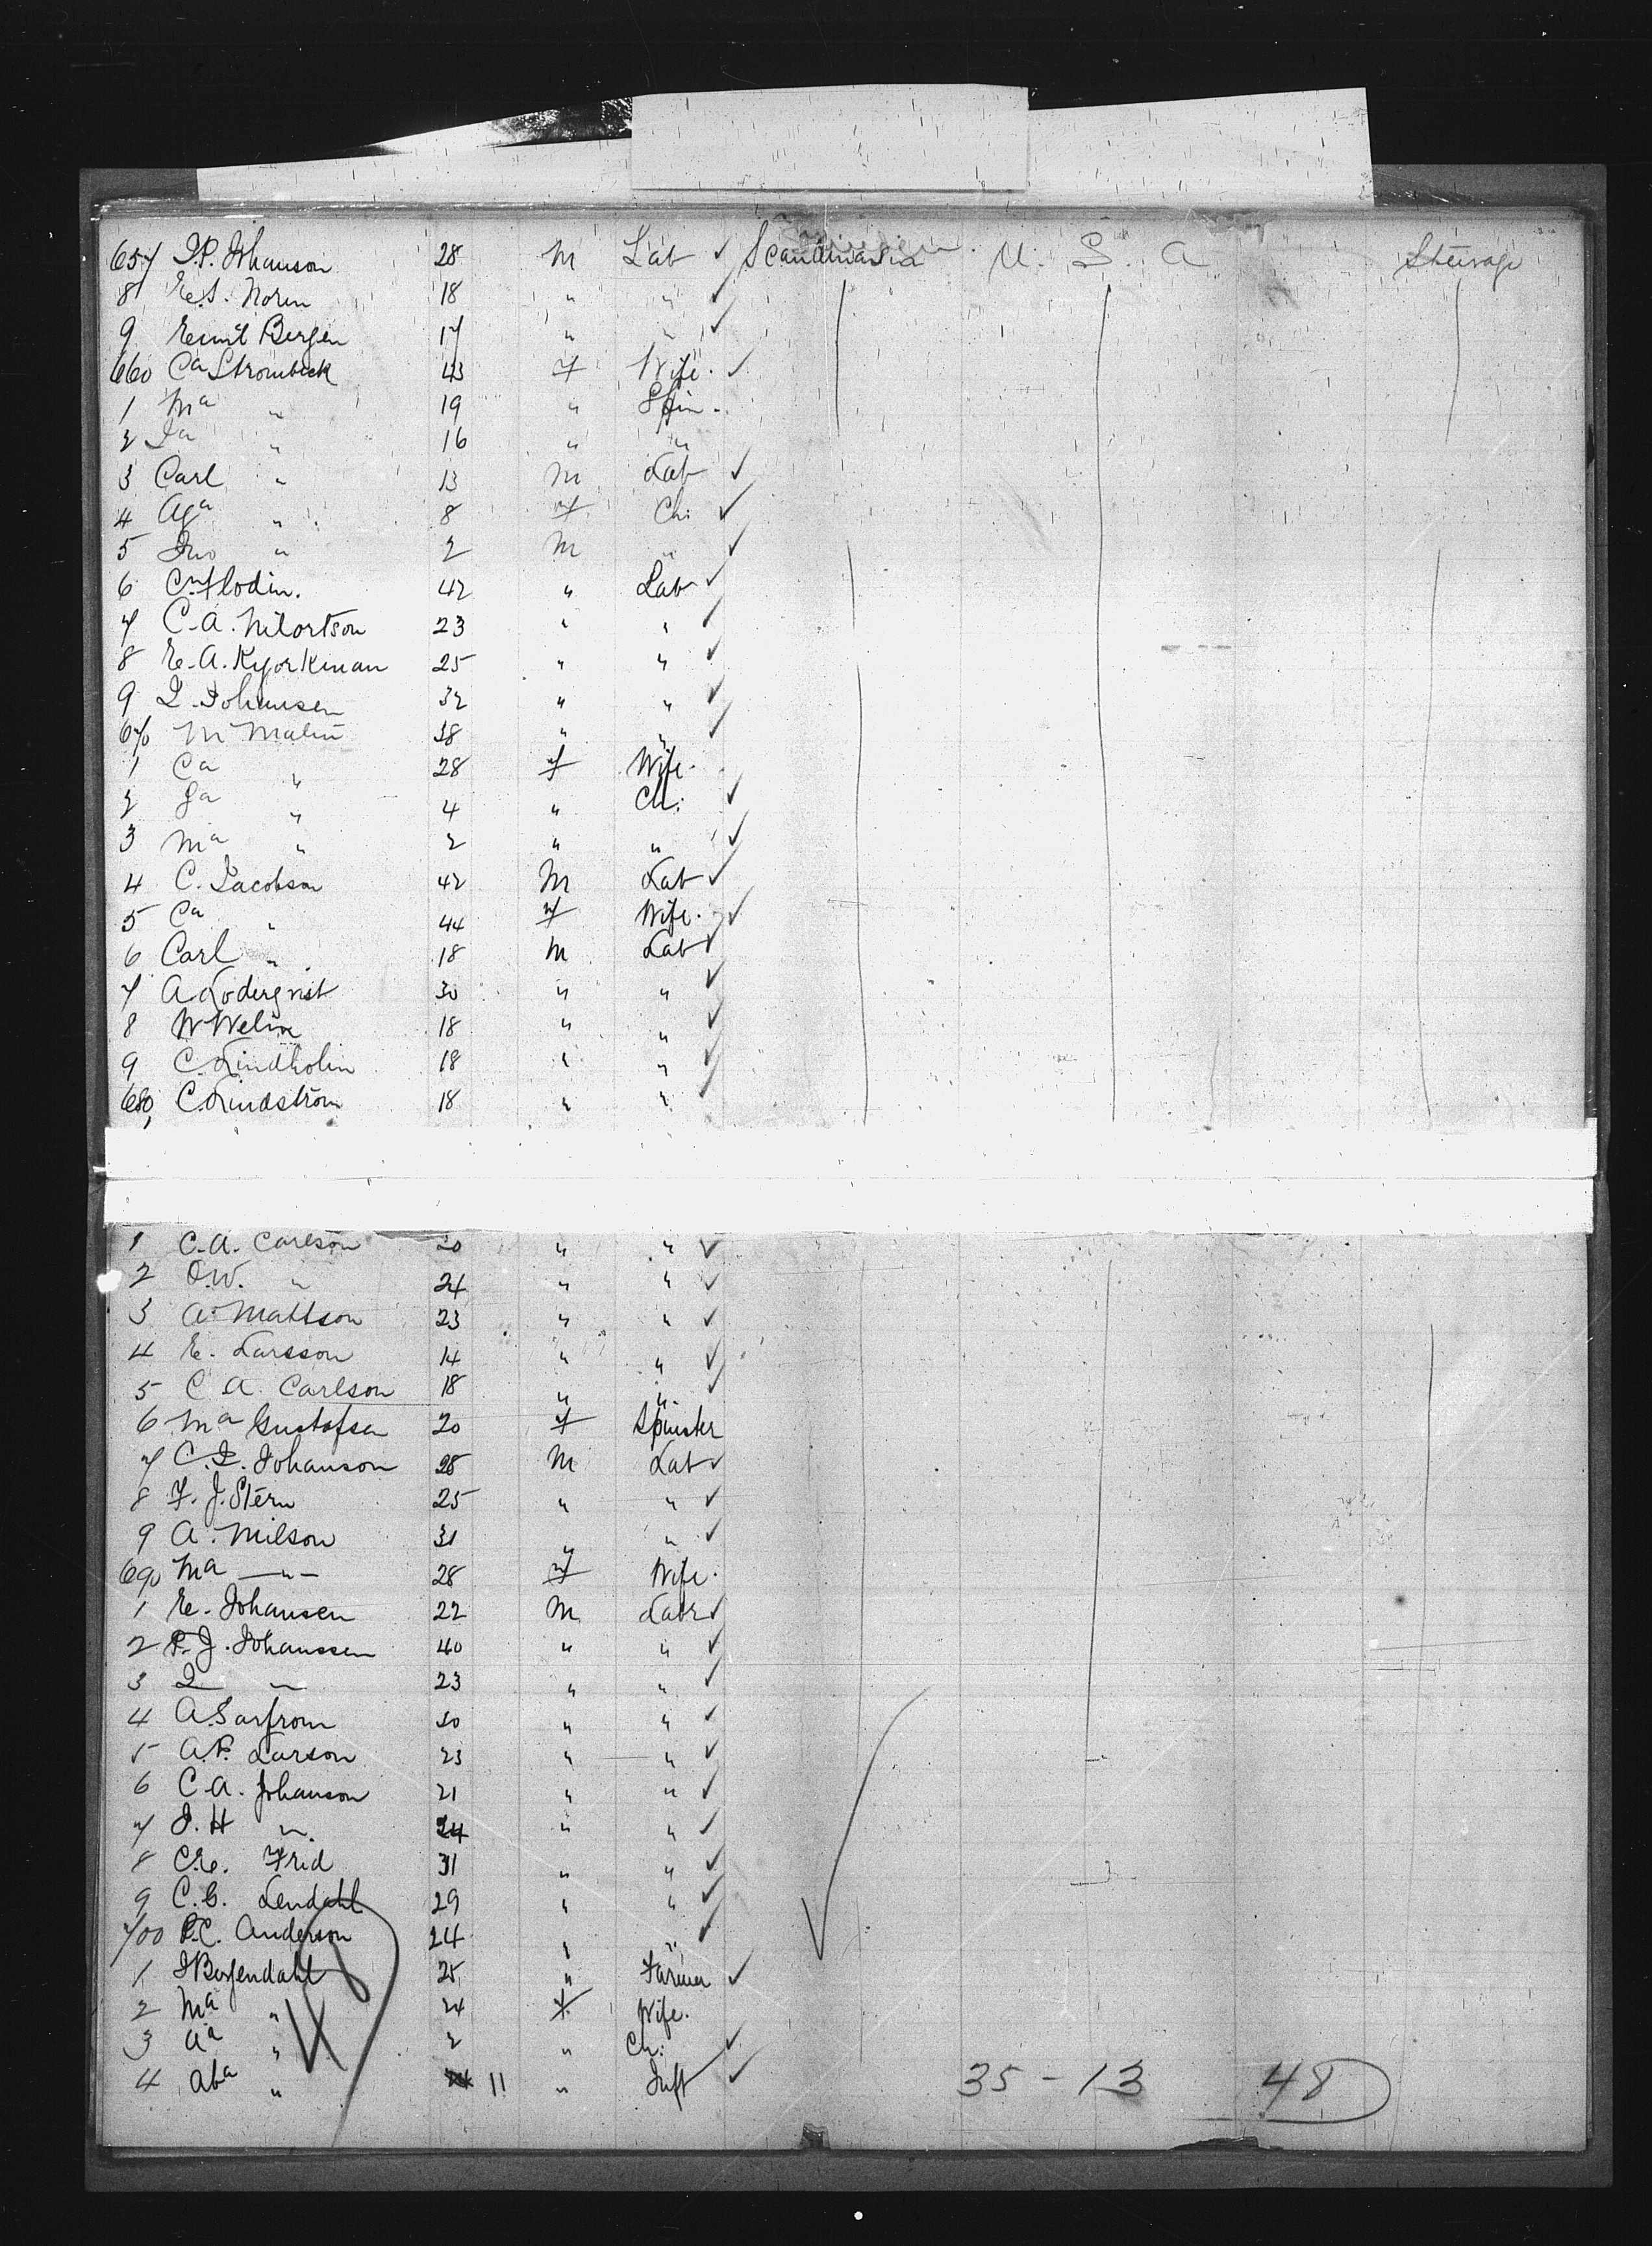 657 J.P. Johanson 28 M Lab ✓ Scandinavia U. S. A Steerage
8 E.S. Noren 18 " " ✓
9 Emil Bergen 17 " " ✓
660 Ca Strombeck 43 f Wife. ✓
1 Ma " 19 " Spin.
2 Ja " 16 " "
3 Carl " 13 M Lab ✓
4 Aga " 8 f Ch: ✓
5 Jno " 2 M " ✓
6 C. Flodin. 42 " Lab ✓
7 C.A. Nilortson 23 " " ✓
8 E.A. Kyorkman 25 " " ✓
9 I. Johansen 32 " " ✓
670 M Malin 38 " " ✓
1 Ca " 28 f Wife.
2 ga " 4 " Ch: ✓
3 Ma " 2 " " ✓
4 C. Jacobson 42 M Lab ✓
5 Ca " 44 f Wife. ✓
6 Carl " 18 M Lab ✓
7 A Loderqvist 30 " " ✓
8 W Welin 18 " " ✓
9 C. Lindholm 18 " " ✓
680, C. Lindstrom 18 " " ✓
1 C.A. Carlson 20 " " ✓
2 O.W. " 24 " " ✓
3 A. Mattson 23 " " ✓
4 E. Larsson 14 " " ✓
5 C A. Carlson 18 " " ✓
6 Ma Gustafsen 20 f Spinster
7 C.I. Johanson 28 M Lab ✓
8 F. J. Stern 25 " " ✓
9 A. Milson 31 " " ✓
690 Ma — " — 28 f Wife.
1 E. Johansen 22 M Labr ✓
2 P. J. Johanssen 40 " " ✓
3 I " 23 " " ✓
4 A. Sarfrom 30 " " ✓
5 A.P. Larson 23 " " ✓
6 C.A. Johanson 21 " " ✓
7 J. H " 24 " " ✓
8 C.E. Frid 31 " " ✓
9 C.G. Lendahl 29 " " ✓
700 P.C. Anderson 24 " " ✓
1 J Bergendahl 25 " Farmer ✓
2 Ma " 24 f Wife.
3 Aa " 2 " Ch: ✓
4 Aba " 11 " Inft ✓ 35 - 13 48